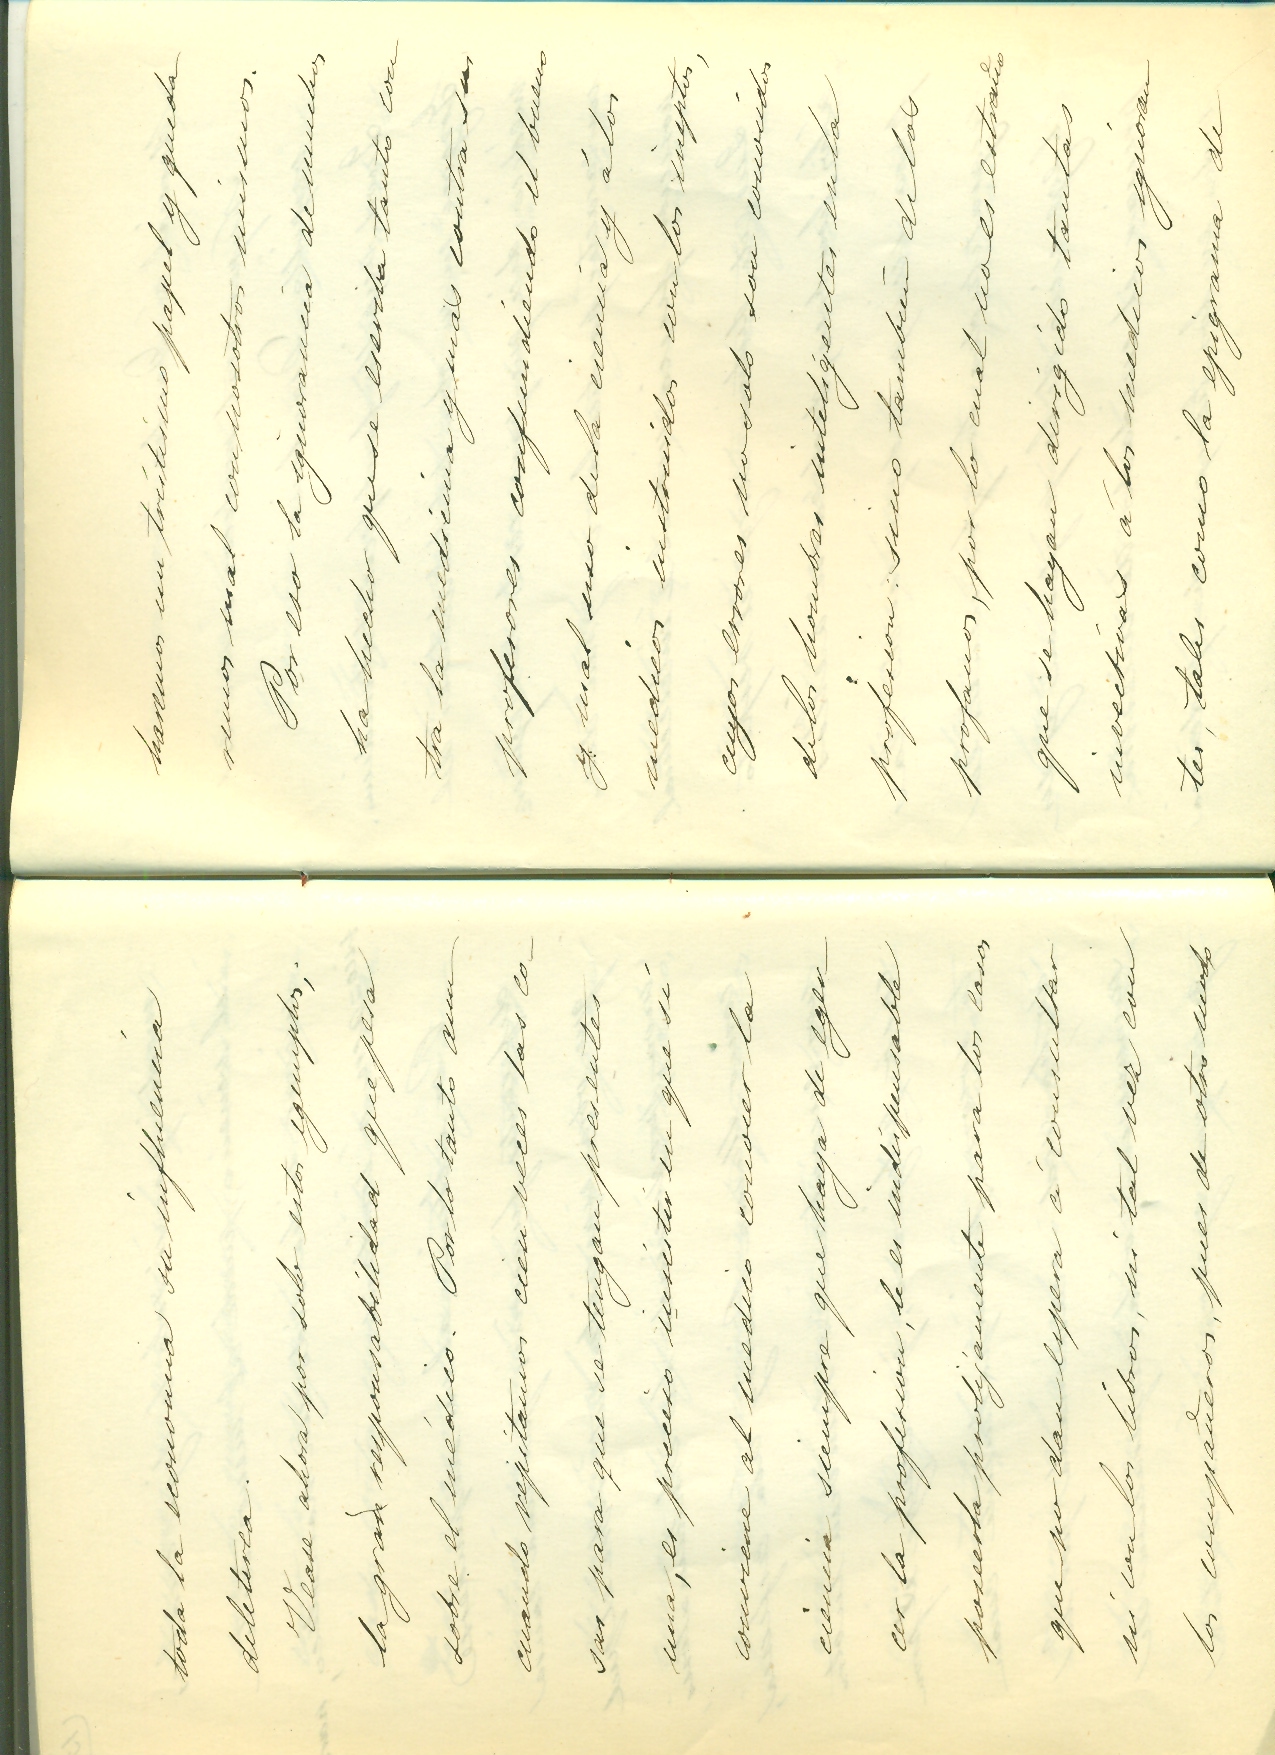 toda la economia su influencia
deleterea.
Vease ahora por solo estos egemplos,
la gran responsabilidad que pesa
sobre el médico. Por lo tanto aun
cuando repitamos cien veces las co-
sas para que se tengan presentes
una, es preciso insistir en que si
conviene al medico conocer la
ciencia siempre que haya de eger
cer la profesion, le es indispensable
poseerla prolijamente para los casos
que no dan espera á consultar
ni con los libros, ni tal vez con
los compañeros, pues de otro modo
haremos un tristísimo papel y queda
remos mal con nosotros mismos.
Por eso la ignorancia de muchos
ha hecho que se escriba tanto con
tra la medicina y mas contra sus
profesores confundiendo el bueno
y mal uso de la ciencia y á los
médicos instruidos con los ineptos,
cuyos errores no solo son conocidos
de los hombres inteligentes en la
profesion sino tambien de los
profanos, por lo cual no es estraño
que se hayan dirigido tantas
invectivas á los medicos ignoran
tes, tales como la epigrama de